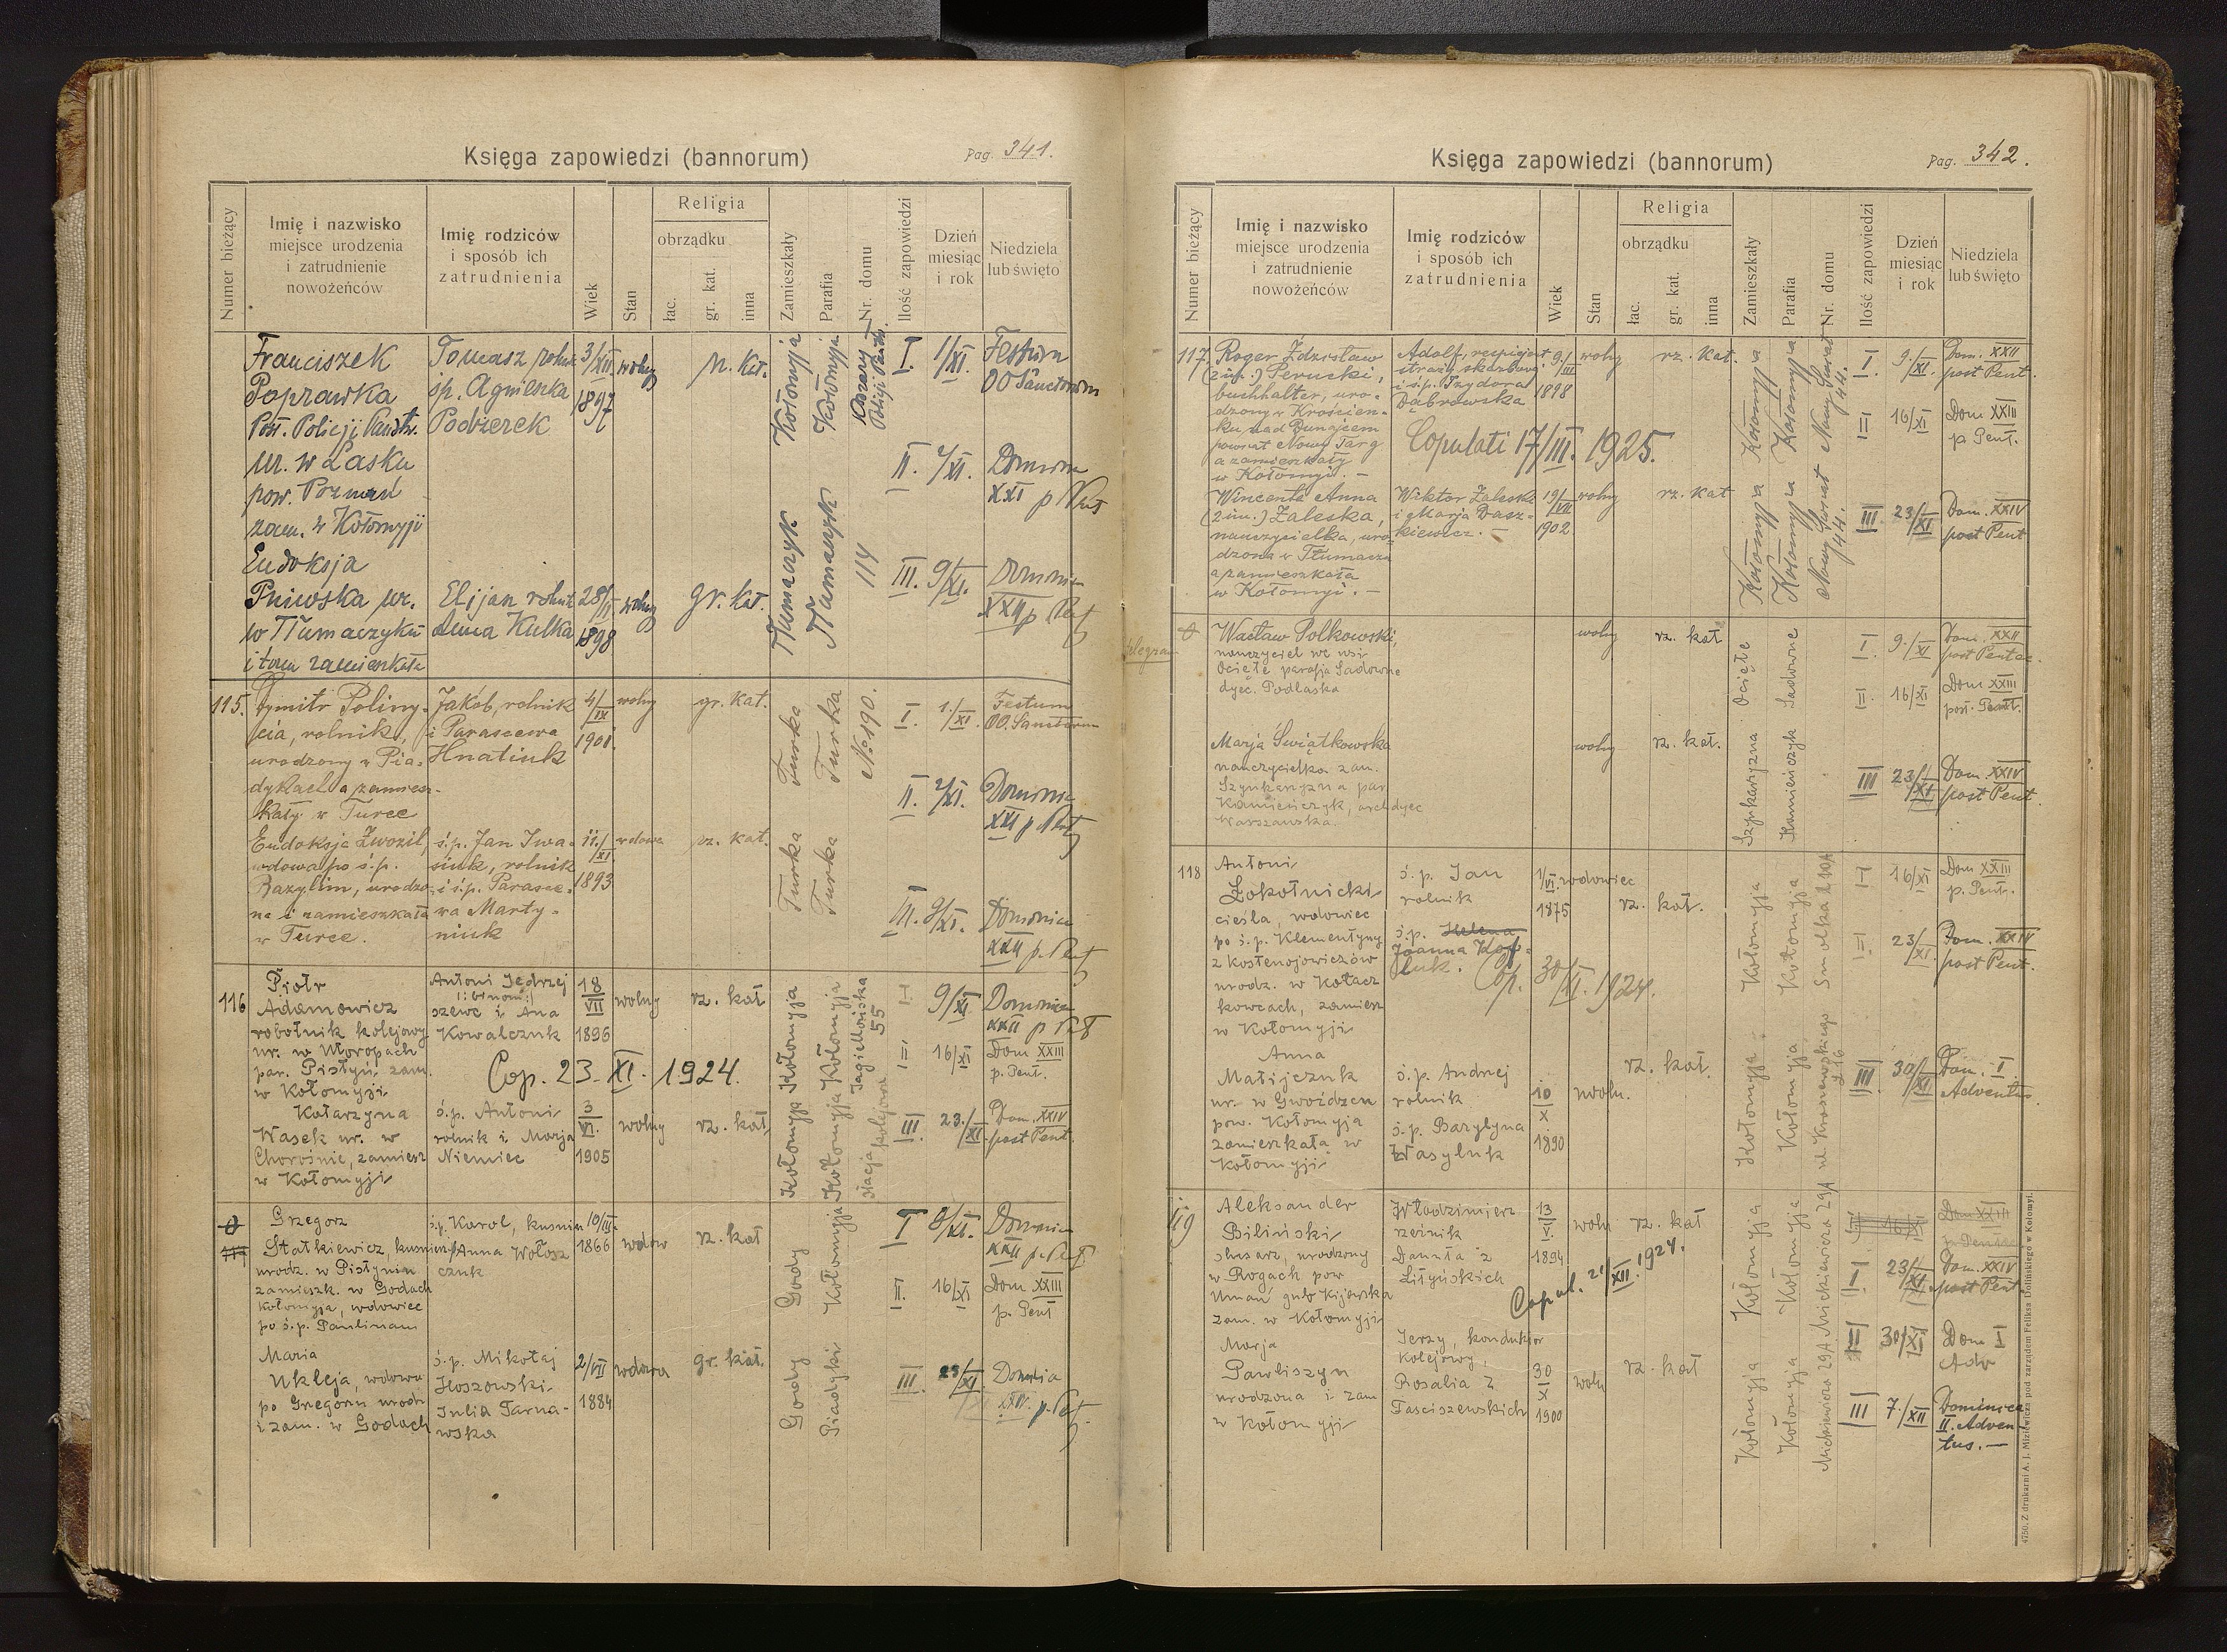 Księga zapowiedzi (bannorum)
Pag. 341.
Numer bieżący
Imię i nazwisko
miejsce urodzenia
i zatrudnienie
nowożeńców
Imię rodziców
i sposób ich
zatrudnienia
Wiek
Stan
Religia
obrządku
łac.
gr. kat.
inna
Zamieszkały
Parafia
Nr. domu
Ilość zapowiedzi
Dzień
miesiąc
i rok
Niedziela
lub święto
Franciszek
Poprawka
Post. Policji Państw.
ur. w Lasku
pow. Poznań
zam. w Kołomyji
Tomasz
śp. Agnieszka
Podżerek
3/XII
1897
wolny
rz. kat.
Kołomyja
Kołomyja
Policji Państw.
I. 1/XI. Festum
OO Sanctorum
II. 2/XI. Dominica
XXI p Pent
III. 9/XI. Dominica
XXII p Pent
Eudoksja
Pniowska ur.
w Tłumaczyku
i tam zamieszkała
Elijan rolnik
Anna Kulka
28/II
1898
wolny
gr. kat.
Tłumaczyk
Tłumaczyk
114
115.
Dymitr Poliny-
cia, rolnik,
urodzony w Pia-
dykach a zamiesz-
kały w Turce
Jakób, rolnik
i Parascewa
Hnatiuk
4/IX
1901.
wolny
gr. kat.
Turka
Turka
No 190.
I. 1./XI. Festum
OO. Sanctorum
II. 2/XI. Dominica
XXI p Pent
III. 9/XI. Dominica
XXII p. Pent
Eudoksja Zwozil,
wdowa po ś.p.
Bazylim, urodzo-
na i zamieszkała
w Turce.
ś.p. Jan Iwa-
siuk, rolnik
i ś.p. Parasce-
wa Marty-
niuk
11./XI.
1893
wdowa
rz. kat.
Turka
Turka
116
Piotr
Adamowicz
robotnik kolejowy
ur. w Utoropach
par. Pistyń zam.
w Kołomyji
Antoni Jędrzej
(:binom:)
szewc i Ana
Kowalczuk
18
VII
1896
wolny
rz. kat
Kołomyja
Kołomyja
Jagiellońska
55
I 9/XI Dominica
XXII p Pent
II 16/XI Dom XXIII
p. Pent.
III. 23./XI Dom. XXIV
post Pent.
Cop. 23. XI. 1924.
Katarzyna
Wasek ur. w
Chorośnie, zamiesz
w Kołomyji
ś.p. Antoni
rolnik i Marja
Niemiec
3
VI.
1905
wolny
rz. kat.
Kołomyja
Kołomyja
stacja kolejowa
Grzegorz
Statkiewicz, kuśnierz
urodz. w Pistyniu
zamieszk. w Godach
Kołomyja, wdowiec
po ś.p. Paulinam
ś.p. Karol, kuśnier
Anna Wołosz
czuk
10/III.
1866
wdow
rz. kat
Gody
Kołomyja
I 9/XI. Dominica
XXII p. Pent
II. 16/XI Dom XXIII
p. Pent
III. 23/XI Dominica
XXIV. p. Pent.
Maria
Ukleja, wdowa
po Gregoru urodz
i zam. w Godach
ś.p. Mikołaj
Hoszowski
Julia Tarna-
wska
2/VII
1884
wdowa
gr. kat.
Gody
Piadyki
Księga zapowiedzi (bannorum)
Pag. 342.
Numer bieżący
Imię i nazwisko
miejsce urodzenia
i zatrudnienie
nowożeńców
Imię rodziców
i sposób ich
zatrudnienia
Wiek
Stan
Religia
obrządku
łac.
gr. kat.
inna
Zamieszkały
Parafia
Nr. domu
Ilość zapowiedzi
Dzień
miesiąc
i rok
Niedziela
lub święto
117.
Roger Zdzisław
(2 im.) Perucki,
buchhalter, uro-
dzony w Krościen-
ku nad Dunajcem
powiat Nowy Targ
a zamieszkały
w Kołomyi. —
Adolf, respicjent
straży skarbowej
i ś.p. Izydora
Dąbrowska
9./III
1898
wolny
rz. kat.
Kołomyja
Kołomyja
Nowy Świat
44.
I. 9./XI. Dom. XXII
post Pent.
II 16/XI Dom XXIII
p Pent.
III. 23/XI Dom. XXIV
post Pent
Copulati 17/III. 1925.
Wincenta Anna
(2 im.) Zaleska,
nauczycielka, uro-
dzona w Tłumaczu
a zamieszkała
w Kołomyi. —
Wiktor Zaleski
i Marja Dasz-
kiewicz.
19/VII
1902
wolny
rz. kat
Kołomyja
Kołomyja
Nowy Świat
44.
Wacław Polkowski,
nauczyciel we wsi
Ocięte parafja Sadowne
dyec. Podlaska
wolny
rz. kat
Ocięte
Sadowne
I. 9./XI Dom. XXII
post Pentec.
II. 16/XI Dom XXIII
post. Pent.
III 23/XI Dom. XXIV
post Pent.
Marja Świątkowska
nauczycielka zam.
Szynkarzyzna par
Kamieńczyk, archdyec
Warszawska.
wolny
rz. kat.
Szynkarzyzna
Kamieńczyk
118
Antoni
Zokołnicki
cieśla, wdowiec
po ś.p. Klementyny
z Kostenojowiczów
urodz. w Kołacz
kowcach, zamiesz
w Kołomyji
ś.p. Jan
rolnik
ś.p. Helena
Joanna
1/VI.
1875
wdowiec
rz. kat.
Kołomyja
Kołomyja
Smolka
I 16/XI Dom XXIII
p. Pent.
II 23/XI. Dom. XXIV
post Pent.
III 30/XI Dom. I
Adventus.
Cop. 30/XI. 1924.
Anna
Matijczuk
ur. w Gwoźdzcu
pow. Kołomyja
zamieszkała w
Kołomyji
ś.p. Andrej
rolnik
ś.p. Barylyna
Wasyluk
10
X
1890
woln.
rz. kat.
Kołomyja
Kołomyja
ul. Kraszewskiego
119
Aleksander
Biliński
ślusarz, urodzony
w Rogach pow
Umań gub Kijowska
zam. w Kołomyji
Włodzimierz
rzeźnik
Danuta z
Lityńskich
13
VI.
1894
woln
rz. kat
Kołomyja
Kołomyja
Mickiewicza 29A
II 16/XI Dom XXIII
p Pentec
I 23/XI. Dom. XXIV
post Pent.
II 30/XI Dom I
Adv
III 7./XII Dominica
II. Adven
tus. —
Copul. 21/XII. 1924.
Marja
Pawliszyn
urodzona i zam
w Kołomyji
Jerzy konduktor
kolejowy,
Rosalia z
Tasciszewskich
30
XI
1900
woln
rz. kat
Kołomyja
Kołomyja
Mickiewicza 29A
4750. Z drukarni A. J. Miziewicza pod zarządem Feliksa Dolińskiego w Kołomyi.